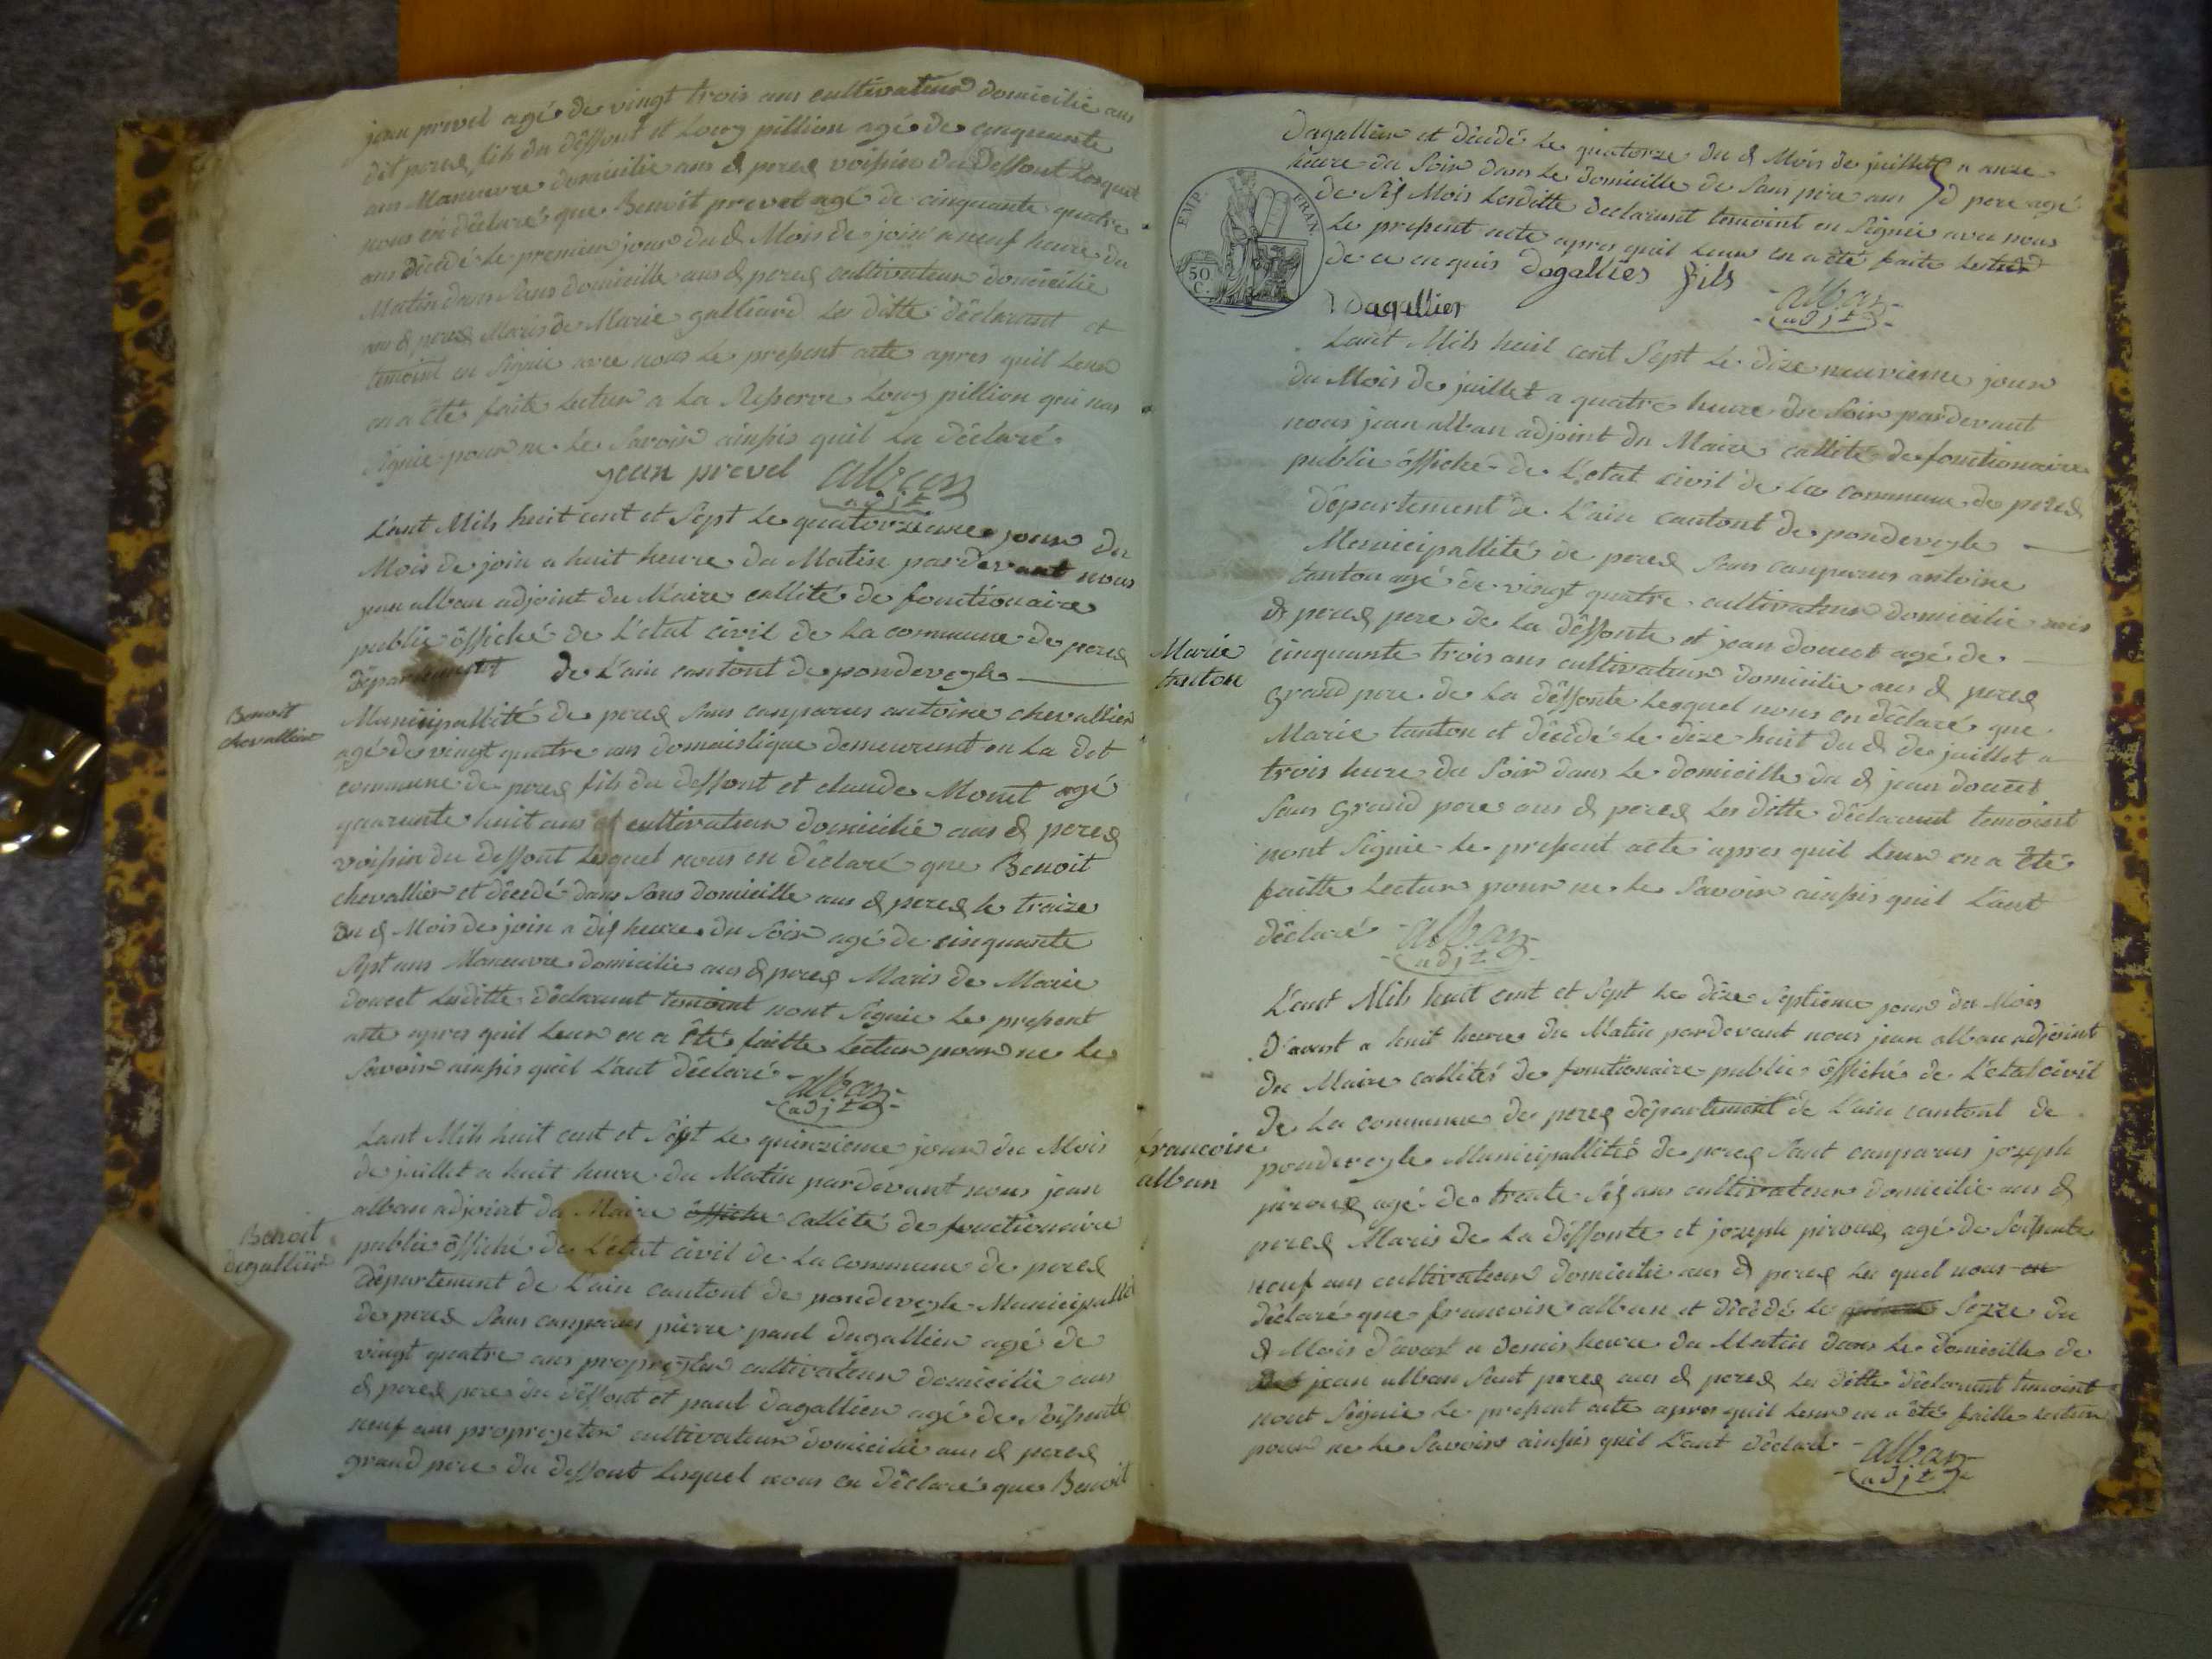 jean prevel agé de vingt trois ans cultivateur domicilie aus
dit perex fils du déffout et Louy pillion agé de cinquante
ans Maneuvre domicilie aus d perex voissin du deffout Lesquel
nous en déclaré que Benoit prevet agé de cinquante quatre
ans décidé le premier jour du d Mois de join a neuf heure du
Matin dans sons domicille aus d perex cultivateur domicilié
aus d perex Maris de Marie galliard Les ditte déclarant et
temoint en Signie avec nous Le present acte apres quil Leur
en a été faite Lectur a La Reserve Louy pillion qui nas
Signié pour ne Le Savoir ainssis quil La déclaré
jean prevel alban
adjt
L'ant Mils huit cent et Sept Le quatorzieme jour du
Mois de join a huit heure du Matin pardevant nous
jean alban adjoint du Maire callité de fonctionaire
public ôffiché de L'etat civil de La commune de perex
département de L'ain cantont de pondeveyle
Benoit
chevallier
Municipallité de perex Sons comparus antoine chevallier
agé de vingt quatre ans domaistique demeurent en La dot
commune de perex fils du deffont et claude Monet agé
quarante huit ans cultivateur domicilié aus d perex
voissin du deffont Lesquel nous en déclaré que Benoit
chevallier et décedé dans Sons domicille aus d perex le traize
du d Mois de join a dix heure du Soir agé de cinquante
Sept ans Maneuvre domicilie aus d perex Maris de Marie
doucet Lesditte déclarant temoint nont Signie Le present
acte apres quil Leur en a été faitte Lectur pour ne Le
Savoir ainssis quil L'aut déclaré alban
adjt
Lant Mils huit cent et Sept Le quinzieme jour du Mois
de juillet a huit heure du Matin pardevant nous jean
alban adjoint du Maire ôffiche callité de fonctionaire
Benoit
degallier
public ôffiché de L'état civil de La commune de perex
département de L'ain cantont de pondeveyle Municipallité
de perex Sons comparus pierre paul dagallier agé de
vingt quatre ans propreyter cultivateur domicilié aus
d perex pere du déffont et paul dagallier agé de Soissente
neuf ans propreyeter cultivateur domicilié aus d perex
grand pere du deffont Lesquel nous en déclaré que Benoit
dagallier et décidé Le quatorze du d Mois de juillet a onze
heure du Soir dans Le domicille de Sans père aus d perex agé
de Six Mois Lesditte declarant temoint en Signie avec nous
Le present acte apres quil Leur en a été faite Lectur
de ce enquis dagallies fils
EMP. FRAN.
50
C.
dagallier
alban
adjt
Lant Mils huit cent Sept Le dize neuvieme jour
du Mois de juillet a quatre heure du Soir pardevant
nous jean alban adjoint du Maire callité de fonctionaire
public ôffiché de L'etat civil de La commune de perex
département de L'ain cantont de pondeveyle
Municipallité de perex Sans comparus antoine
tanton agé de vingt quatre cultivateur domicilie aus
d perex pere de La déffonte et jean doucet agé de
Marie
tanton
cinquante trois ans cultivateur domicilie aus d perex
grand pere de La déffonte Lesquel nous en déclaré que
Marie tanton et décidé Le dize huit du d de juillet a
trois heure du Soir dans Le domicille du d jean doucet
Sons grand pere aus d perex Les ditte déclarant temoient
nont Signie Le present acte apres quil Leur en a été
faitte Lectur pour ne Le Savoir ainssis quil L'aut
déclaré alban
adjt
L'ant Mils huit cent et Sept Le dixe Septieme jour du Mois
D'avost a huit heure du Matin pardevant nous jean alban adjoint
du Maire callités de fonctionaire public ôffiché de L'etat civil
de La commune de perex département de L'ain cantont de
francoise
alban
pondeveyle Municipallités de perex Sont comparus jozeph
piroux agé de trente Six ans cultivateur domicilie aus d
perex Maris de La déffonte et jozeph piroux agé de Soissente
neuf ans cultivateur domicilie aus d perex Les quel nous en
déclaré que francoise alban et décédé Le Sezze du
d Mois d'avost a demis heure du Matin dans Le domicille de
jean alban Sont perex aus d perex Les ditte déclarent temoint
nont Signie Le present acte apres quil Leur en a été faitte Lectur
pour ne Le Savoir ainssis quil L'aut déclaré alban
adjt